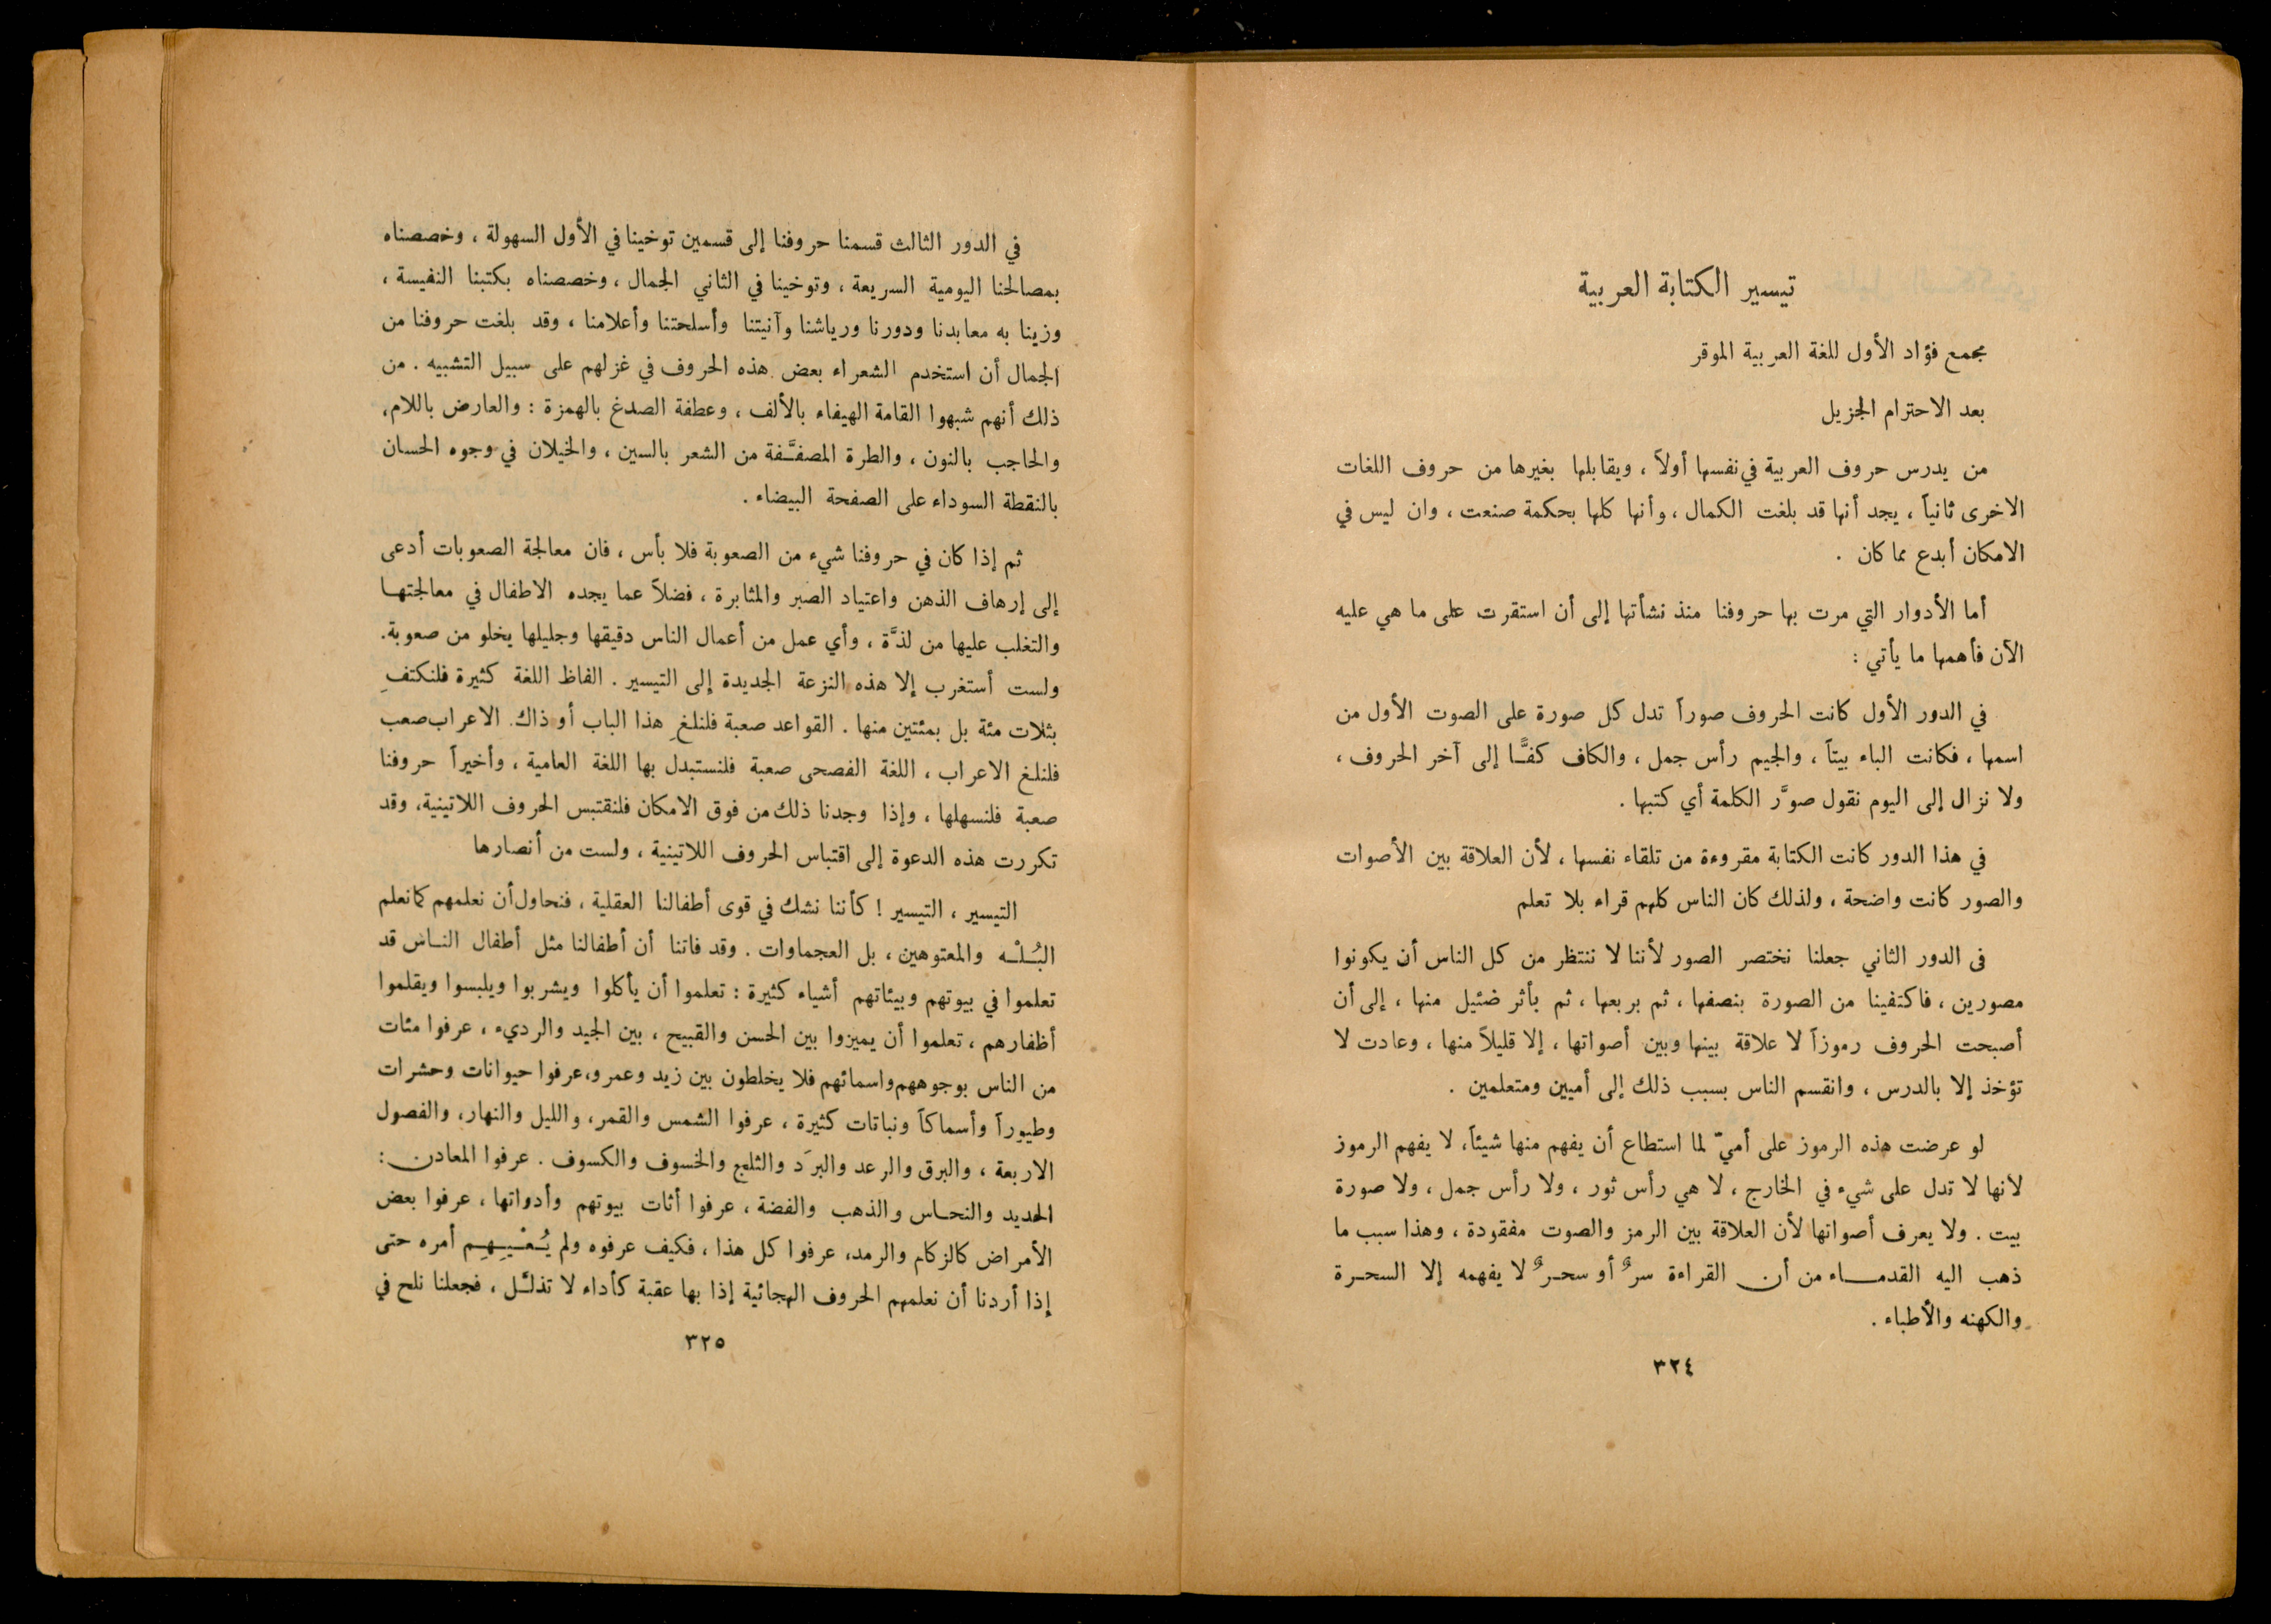 تيسير الكتابة العربية
مجمع فؤاد الأول للغة العربية الموقر
بعد الاحترام الجزيل
من يدرس حروف العربية في نفسها أولاً ، ويقابلها بغيرها من حروف اللغات
الاخرى ثانياً ، يجد أنها قد بلغت الكمال ، وأنها كلها بحكمة صنعت ، وان ليس في
الامكان أبدع مما كان .
أما الأدوار التي مرت بها حروفنا منذ نشأتها إلى أن استقرت على ما هي عليه
الآن فأهمها ما يأتي :
في الدور الأول كانت الحروف صوراً تدل كل صورة على الصوت الأول من
اسمها ، فكانت الباء بيتاً ، والجيم رأس جمل ، والكاف كفًّا إلى آخر الحروف ،
ولا نزال إلى اليوم نقول صوَّر الكلمة أي كتبها .
في هذا الدور كانت الكتابة مقروءة من تلقاء نفسها ، لأن العلاقة بين الأصوات
والصور كانت واضحة ، ولذلك كان الناس كلهم قراء بلا تعلم
فى الدور الثاني جعلنا نختصر الصور لأننا لا ننتظر من كل الناس أن يكونوا
مصورين ، فاكتفينا من الصورة بنصفها ، ثم بربعها ، ثم بأثر ضئيل منها ، إلى أن
أصبحت الحروف رموزاً لا علاقة بينها وبين أصواتها ، إلا قليلاً منها ، وعادت لا
تؤخذ إلا بالدرس ، وانقسم الناس بسبب ذلك إلى أميين ومتعلمين .
لو عرضت هذه الرموز على أميّ لما استطاع أن يفهم منها شيئاً ، لا يفهم الرموز
لأنها لا تدل على شيء في الخارج ، لا هي رأس ثور ، ولا رأس جمل ، ولا صورة
بيت . ولا يعرف أصواتها لأن العلاقة بين الرمز والصوت مفقودة ، وهذا سبب ما
ذهب اليه القدماء من أن القراءة سرٌّ أو سحرٌ لا يفهمه إلا السحرة
والكهنه والأطباء .
٣٢٤
في الدور الثالث قسمنا حروفنا إلى قسمين توخينا في الأول السهولة ، وخصصناه
بمصالحنا اليومية السريعة ، وتوخينا في الثاني الجمال ، وخصصناه بكتبنا النفيسة ،
وزينا به معابدنا ودورنا ورياشنا وآنيتنا وأسلحتنا وأعلامنا ، وقد بلغت حروفنا من
الجمال أن استخدم الشعراء بعض هذه الحروف في غزلهم على سبيل التشبيه . من
ذلك أنهم شبهوا القامة الهيفاء بالألف ، وعطفة الصدغ بالهمزة : والعارض باللام ،
والحاجب بالنون ، والطرة المصفَّفة من الشعر بالسين ، والخيلان في وجوه الحسان
بالنقطة السوداء على الصفحة البيضاء .
ثم إذا كان في حروفنا شيء من الصعوبة فلا بأس ، فان معالجة الصعوبات أدعى
إلى إرهاف الذهن واعتياد الصبر والمثابرة ، فضلاً عما يجده الاطفال في معالجتها
والتغلب عليها من لذَّة ، وأي عمل من أعمال الناس دقيقها وجليلها يخلو من صعوبة.
ولست أستغرب إلا هذه النزعة الجديدة إلى التيسير . الفاظ اللغة كثيرة فلنكتفِ
بثلاث مئة بل بمئتين منها . القواعد صعبة فلنلغِ هذا الباب أو ذاك. الاعراب صعب
فلنلغ الاعراب ، اللغة الفصحى صعبة فلنستبدل بها اللغة العامية ، وأخيراً حروفنا
صعبة فلنسهلها ، وإذا وجدنا ذلك من فوق الامكان فلنقتبس الحروف اللاتينية، وقد
تكررت هذه الدعوة إلى اقتباس الحروف اللاتينية ، ولست من أنصارها
التيسير ، التيسير ! كأننا نشك في قوى أطفالنا العقلية ، فنحاول أن نعلمهم كما نعلم
البُلْه والمعتوهين ، بل العجماوات . وقد فاتنا أن أطفالنا مثل أطفال الناس قد
تعلموا في بيوتهم وبيئاتهم أشياء كثيرة : تعلموا أن يأكلوا ويشربوا ويلبسوا ويقلموا
أظفارهم ، تعلموا أن يميزوا بين الحسن والقبيح ، بين الجيد والرديء ، عرفوا مئات
من الناس بوجوههم واسمائهم فلا يخلطون بين زيد وعمرو، عرفوا حيوانات وحشرات
وطيوراً وأسماكاً ونباتات كثيرة ، عرفوا الشمس والقمر، والليل والنهار، والفصول
الاربعة ، والبرق والرعد والبرَد والثلج والخسوف والكسوف . عرفوا المعادن :
الحديد والنحاس والذهب والفضة ، عرفوا أثاث بيوتهم وأدواتها ، عرفوا بعض
الأمراض كالزكام والرمد، عرفوا كل هذا ، فكيف عرفوه ولم يُعْيِهِم أمره حتى
إذا أردنا أن نعلمهم الحروف الهجائية إذا بها عقبة كأداء لا تذلَّل ، فجعلنا نلح في
٣٢٥